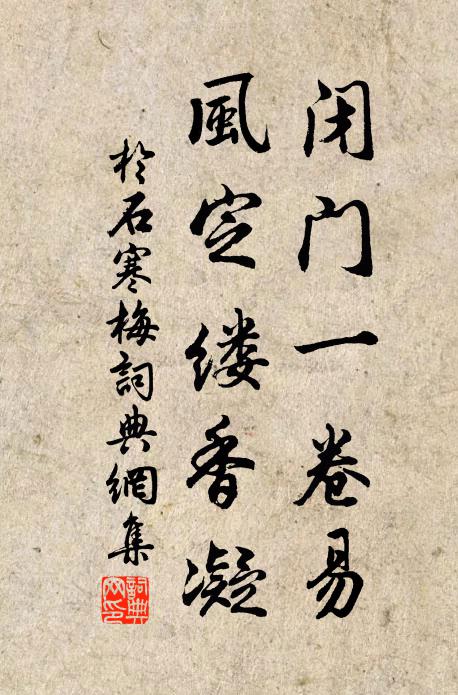 闭门一卷易
風定缕香凝
於石寒梅詞典網集
詞典
网印